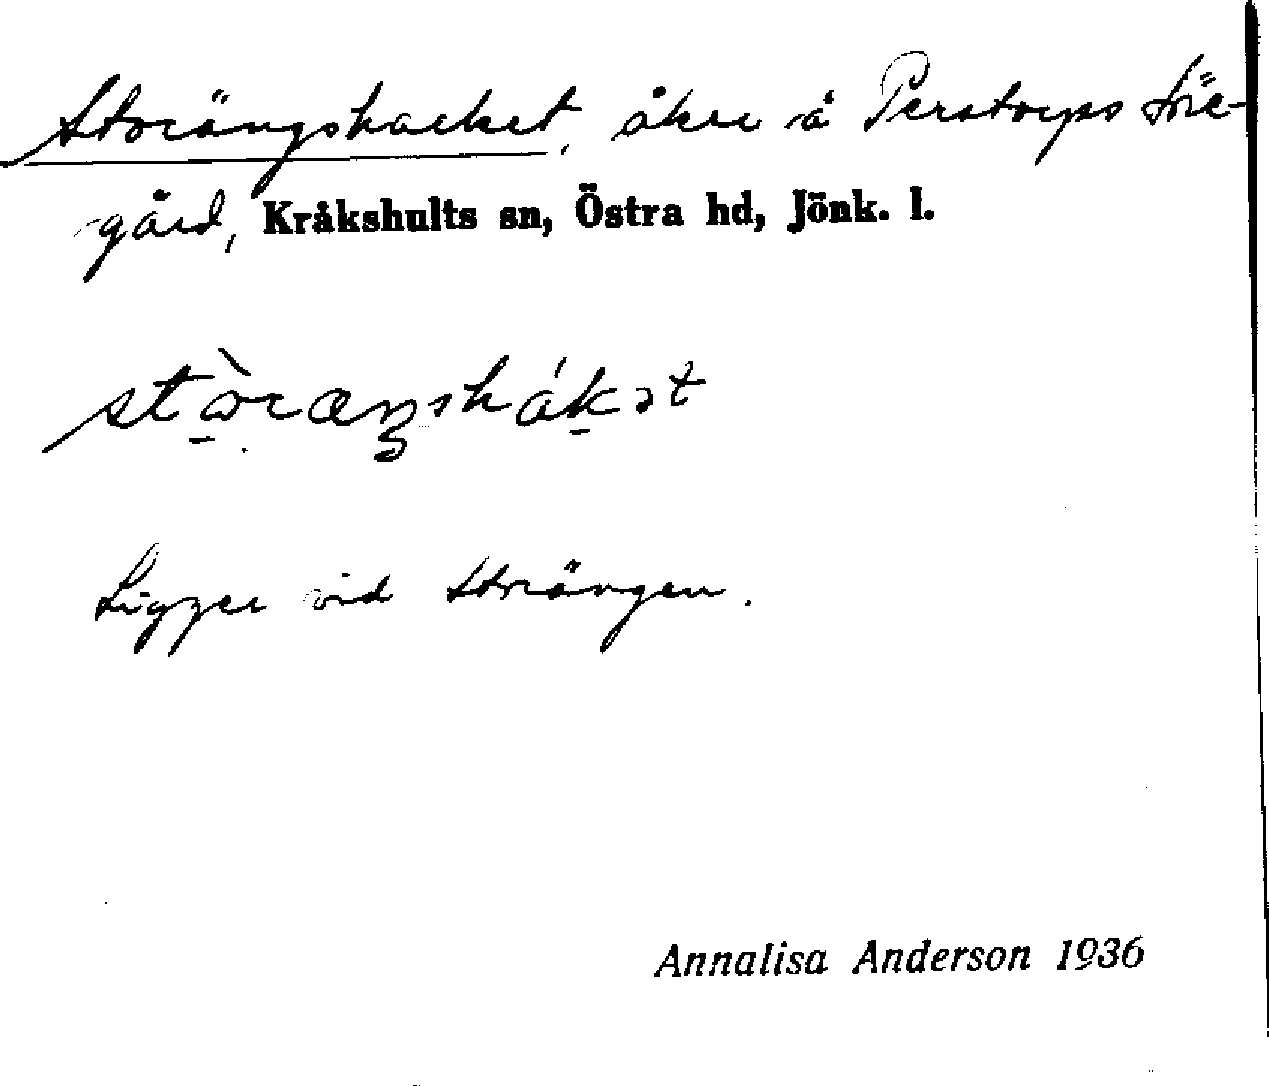 Storängshacket, åker å Perstorps Sör-
gård, Kråkshults sn, Östra hd, Jönk. l.
Ligger vid Storängen.
Annalisa Anderson 1936